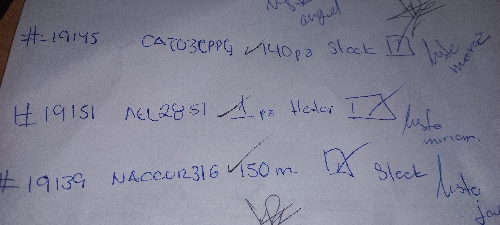 angel
#-19145 CAT03CPPG ✓ 140 pz Steck Liste
#19151 ACL2851 ✓ 1 pz Liste
miriam.
#19139 NACCUR316 ✓ 150 m. Steck Listo